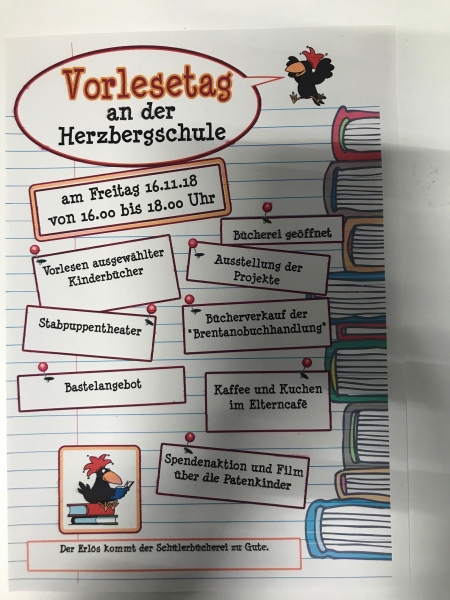 Vorlesetag
an der
Herzbergschule
am Freitag 16.11.18
von 16.00 bis 18.00 Uhr
Bücherei geöffnet
Vorlesen ausgewählter
Kinderbücher
Ausstellung der
Projekte
Stabpuppentheater
Bücherverkauf der
"Brentanobuchhandlung"
Bastelangebot
Kaffee und Kuchen
im Elterncafè
Spendenaktion und Film
über die Patenkinder
Der Erlös kommt der Schülerbücherei zu Gute.